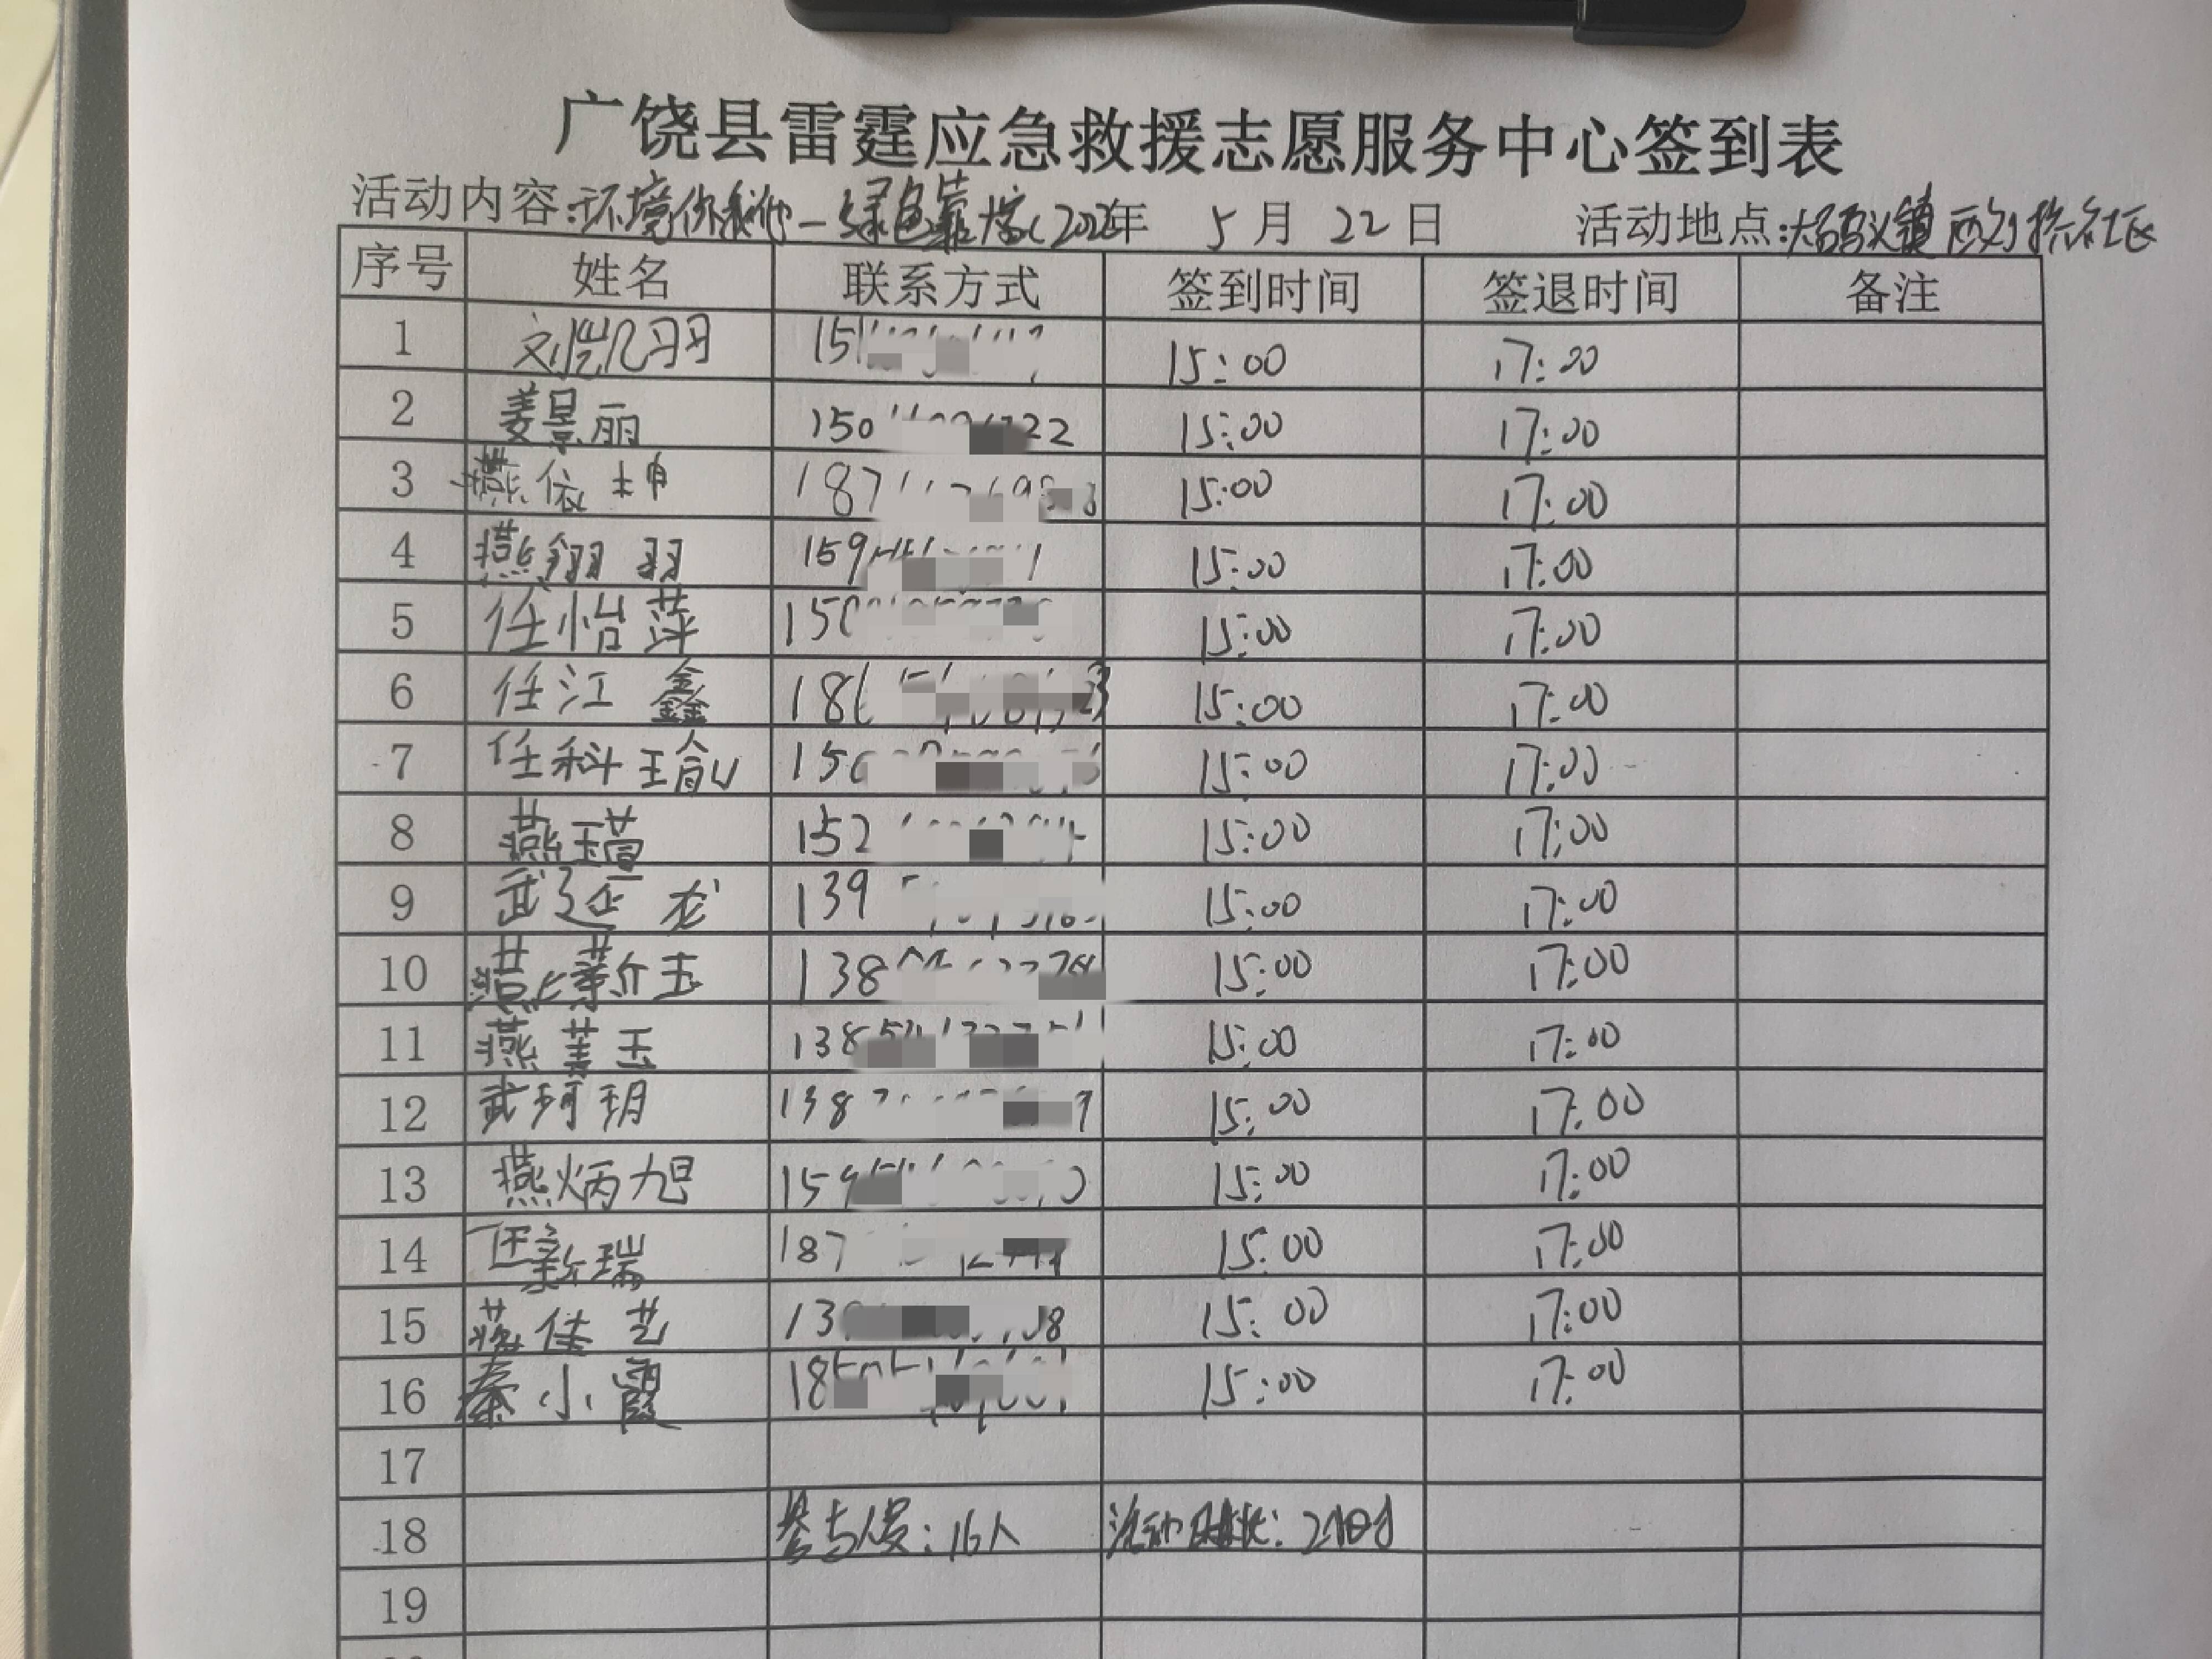 广饶县雷霆应急救援志愿服务中心签到表
活动内容:环境你我他—绿色靠大家 2022年 5月22日 活动地点:大码头镇西刘桥社区
序号 姓名 联系方式 签到时间 签退时间 备注
1 刘凯羽 15 15:00 17:00
2 姜景丽 150 22 15:00 17:00
3 燕依坤 187 15:00 17:00
4 燕翔羽 159 15:00 17:00
5 任怡萍 15 15:00 17:00
6 任江鑫 18 15:00 17:00
7 任科瑜 15 15:00 17:00
8 燕瑄 152 15:00 17:00
9 武延龙 139 15:00 17:00
10 燕新玉 138 15:00 17:00
11 燕菁玉 138 15:00 17:00
12 武珂玥 138 15:00 17:00
13 燕炳旭 159 15:00 17:00
14 任新瑞 187 15:00 17:00
15 佳艺 13 8 15:00 17:00
16 秦小霞 18 15:00 17:00
17
18 参与人员:16人 活动时长:2小时
19